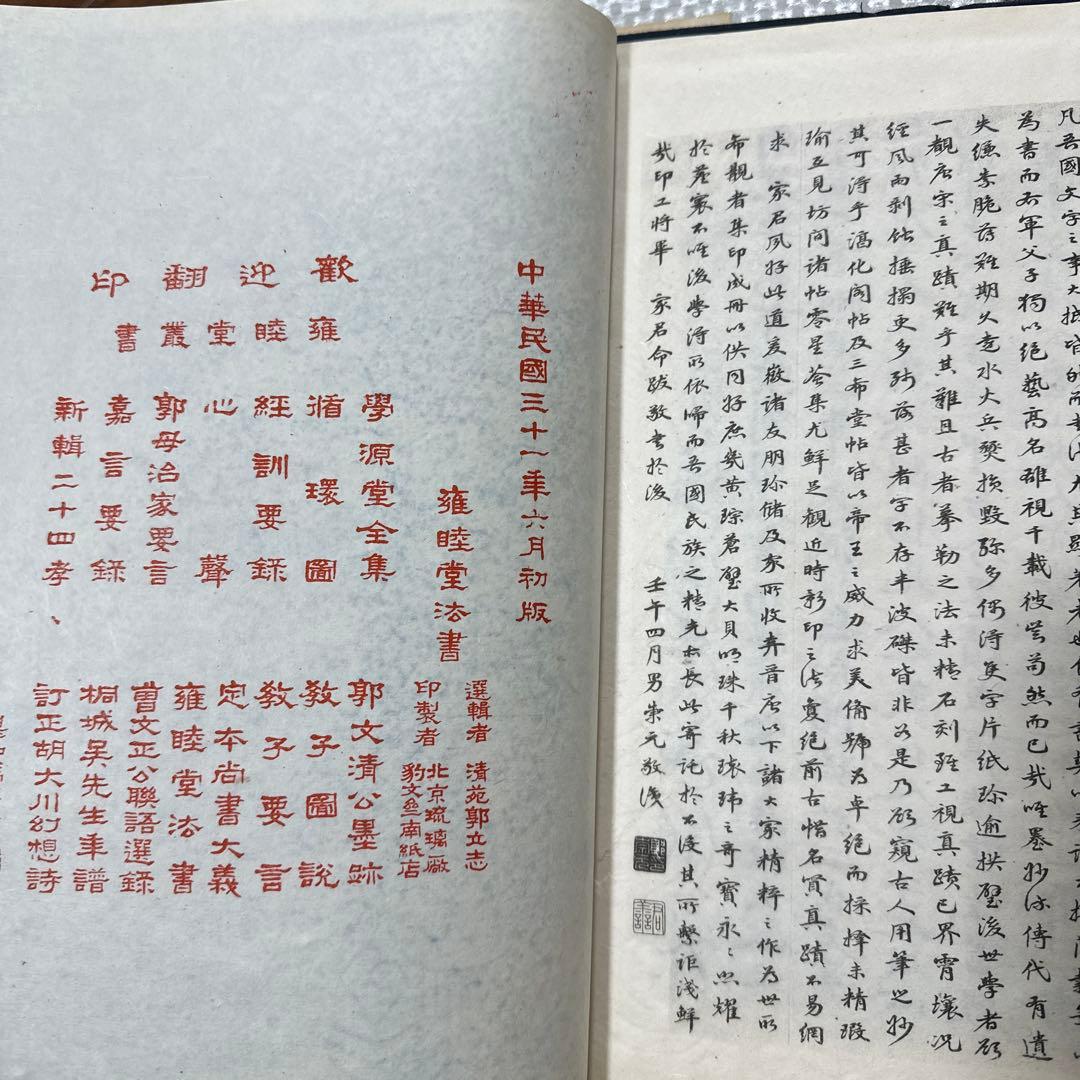 凡吾國文字之事大抵皆
為書而右軍父子獨以絕藝高名雄視千載彼豈苟然而已哉唯墨妙流傳代有遺
失縑素脆薄難期久壽水火兵燹損毀弥多偶得隻字片紙珍逾拱璧後世學者欲
一覩唐宋之真蹟難乎其難且古者摹勒之法未精石刻雖工視真蹟已界霄壤况
經風雨剥蝕捶搨更多殘落甚者字不存半波磔皆非以是乃欲窺古人用筆之妙
其可得乎淳化閣帖及三希堂帖皆以帝王之威力求美備號為卓絕而採擇未精瑕
瑜互見坊間諸帖零星薈集尤鮮足觀近時影印之法夐絕前古惜名賢真蹟不易網
求 家君夙好此道爰徵諸友朋珍儲及家所收弆晉唐以下諸大家精粹之作為世所
希覯者集印成冊以供同好庶幾黃琮蒼璧大貝明珠千秋瓌瑋之奇寶永永照耀
於藝寰不唯後學得所依歸而吾國民族之精光亦長此寄託於不沒其所繫詎淺鮮
哉印工將畢 家君命跋敬書於後
壬午四月男崇元敬識
中華民國三十一年六月初版
雍睦堂法書
選輯者 清苑郭立志
印製者 北京琉璃廠
豹文齋南紙店
歡迎翻印
雍睦堂叢書
學源堂全集
循環圖
經訓要錄
心聲
郭母治家要言
嘉言要錄
新輯二十四孝、
郭文清公墨跡
教子圖說
教子要言
定本尚書大義
雍睦堂法書
曾文正公聯語選錄
桐城吳先生年譜
訂正胡大川幻想詩